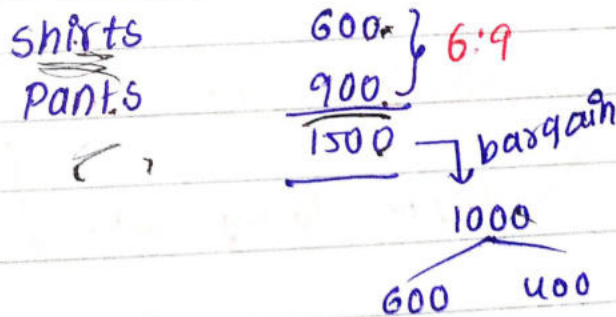 shirts 600 } 6:9
Pants 900
1500 bargain
1000
600 400